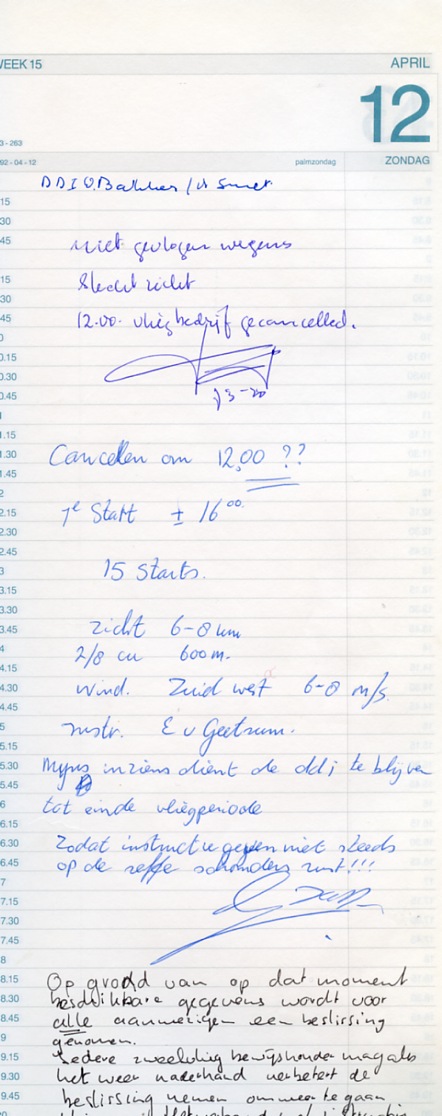 WEEK 15 APRIL
12
3 - 263
92 - 04 - 12 palmzondag ZONDAG
DDI O. Bakker / v Smet.
15
30
45 niet gevlogen wegens
15 slecht zicht
30
45 12.00. vliegbedrijf gecancelled.
0.15
0.30
0.45
1.15
1.30 Cancellen om 12,00 ??
1.45
2
2.15 1e Start ± 16 00.
2.30
2.45
3 15 Starts.
3.15
3.30
3.45 zicht 6-8 km
4 2/8 cu 600 m.
4.15
4.30 wind. Zuid west 6-8 m/s.
4.45
5 instr. E v Geetsum.
5.15
5.30 Mijns inziens dient de ddi te blijven
5.45
6 tot einde vliegperiode
6.15
6.30 Zodat instructie geven niet steeds
6.45 op de zelfde schouders rust!!!
7
7.15
7.30
7.45
8
8.15 Op grond van op dat moment
8.30 beschikbare gegevens wordt voor
8.45 alle aanwezigen een beslissing
9 genomen.
9.15 Iedere zweefvlieg bewijshouder mag als
9.30 het weer naderhand verbetert de
9.45 beslissing nemen om weer te gaan